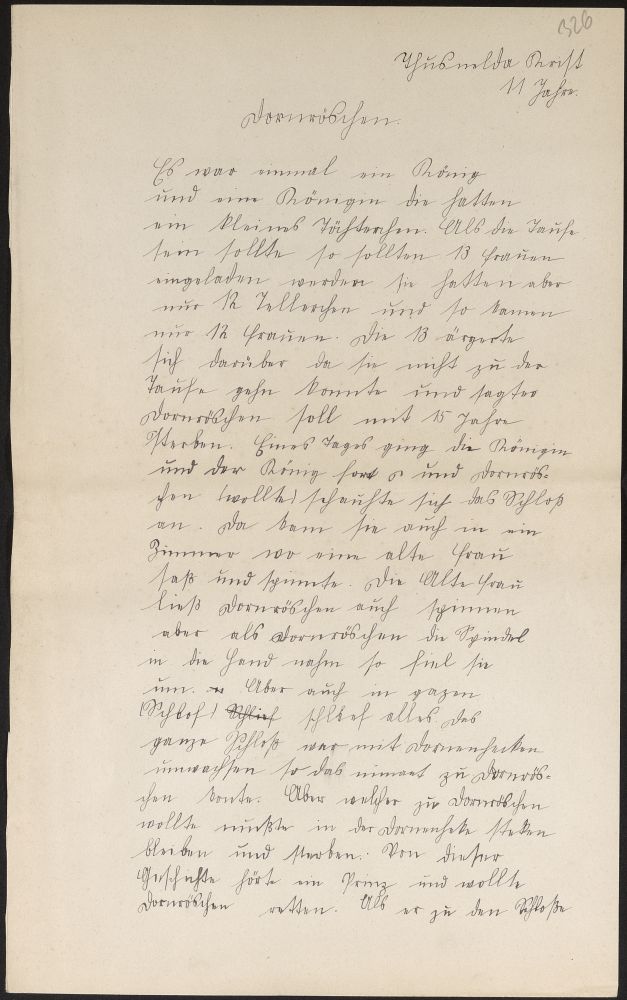 326
Thusnelda Krist
11 Jahre.
Dornröschen.
Es war einmal ein König
und eine Königin die hatten
ein kleines Töchterchen. Als die Taufe
sein sollte so sollten 13 Frauen
eingeladen werden sie hatten aber
nur 12 Tellerchen und so kamen
nur 12 Frauen. Die 13 ärgerte
sich darüber da sie nicht zu der
Taufe gehn konnte und sagter
Dornröschen soll mit 15 Jahre
sterben. Eines Tages ging die Königin
und der König fort und Dornrös-
chen (wollte) schauhte sich das Schloß
an. Da kam sie auch in ein
Zimmer wo eine alte Frau
saß und spinnte. Die Alte Frau
ließ Dornröschen auch spinnen
aber als Dornröschen die Spindel
in die Hand nahm so fiel sie
um. Aber auch in gazen
(Schlof) Schlief schlief alles. Das
ganze Schloß war mit Dornenhecken
umwachsen so das niemat zu Dornrös-
chen konte. Aber welcher zu Dornröschen
wollte mußte in der Dornenheke steken
bleiben und sterben. Von dieser
Geschichte hörte ein Prinz und wollte
Dornröschen retten. Als er zu den Schloße